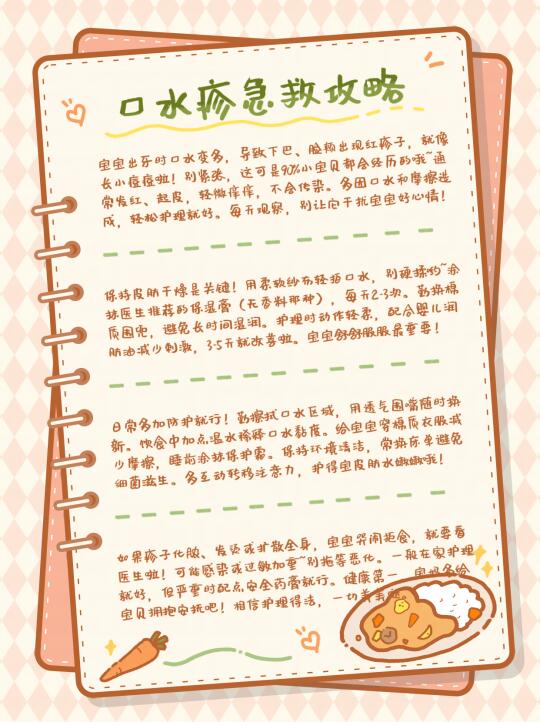 口水疹急救攻略
宝宝出牙时口水变多，导致下巴、脸颊出现红疹子，就像
长小痘痘啦！别紧张，这可是90%小宝贝都会经历的哦~通
常发红、起皮，轻微痒痒，不会传染。多因口水和摩擦造
成，轻松护理就好。每天观察，别让它干扰宝宝好心情！
保持皮肤干燥是关键！用柔软纱布轻拍口水，别硬揉哟~涂
抹医生推荐的保湿膏（无香料那种），每天2-3次。勤换棉
质围兜，避免长时间湿润。护理时动作轻柔，配合婴儿润
肤油减少刺激，3-5天就改善啦。宝宝舒舒服服最重要！
日常多加防护就行！勤擦拭口水区域，用透气围嘴随时换
新。饮食中加点温水稀释口水黏度。给宝宝穿棉质衣服减
少摩擦，睡前涂抹保护霜。保持环境清洁，常换床单避免
细菌滋生。多互动转移注意力，护得宝皮肤水嫩嫩哦！
如果疹子化脓、发烫或扩散全身，宝宝哭闹拒食，就要看
医生啦！可能感染或过敏加重~别拖等恶化。一般在家护理
就好，但严重时配点安全药膏就行。健康第一
宝贝拥抱安抚吧！相信护理得法，一切